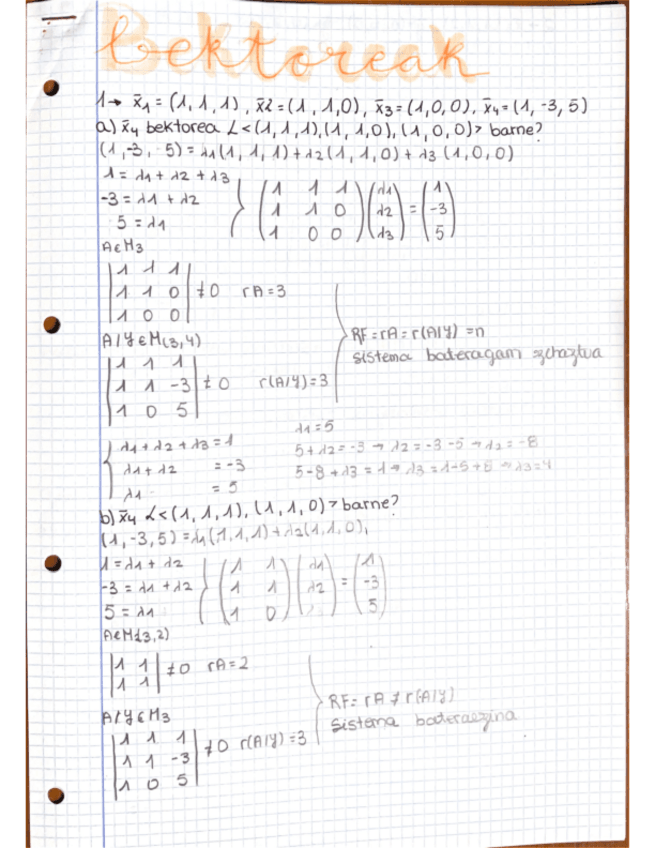 Bektoreak
1→ x̄1 = (1, 1, 1), x̄2 = (1, 1, 0), x̄3 = (1, 0, 0), x̄4 = (1, -3, 5)
a) x̄4 bektorea L<(1, 1, 1), (1, 1, 0), (1, 0, 0)> barne?
(1, -3, 5) = λ1(1, 1, 1) + λ2(1, 1, 0) + λ3 (1, 0, 0)
1 = λ1 + λ2 + λ3
-3 = λ1 + λ2
5 = λ1
} (1 1 1) (λ1) (1)
(1 1 0) (λ2) = (-3)
(1 0 0) (λ3) (5)
A∈M3
|1 1 1|
|1 1 0| ≠0 rA = 3
|1 0 0|
A/Y∈M(3,4)
|1 1 1|
|1 1 -3| ≠ 0 r(A/Y) = 3
|1 0 5|
RF = rA = r(A/Y) = n
sistema bateragarri zehaztua
{ λ1 + λ2 + λ3 = 1
λ1 + λ2 = -3
λ1 = 5
λ1 = 5
5 + λ2 = -3 → λ2 = -3 -5 → λ2 = -8
5 - 8 + λ3 = 1 → λ3 = 1-5+8 → λ3 = 4
b) x̄4 L<(1, 1, 1), (1, 1, 0)> barne?
(1, -3, 5) = λ1(1, 1, 1) + λ2(1, 1, 0),
1 = λ1 + λ2
-3 = λ1 + λ2
5 = λ1
} (1 1) (λ1) (1)
(1 1) (λ2) = (-3)
(1 0) (5)
A∈M(3,2)
|1 1| ≠0 rA = 2
|1 1|
A/Y∈M3
|1 1 1|
|1 1 -3| ≠0 r(A/Y) = 3
|1 0 5|
RF = rA ≠ r(A/Y)
sistema bateraezina